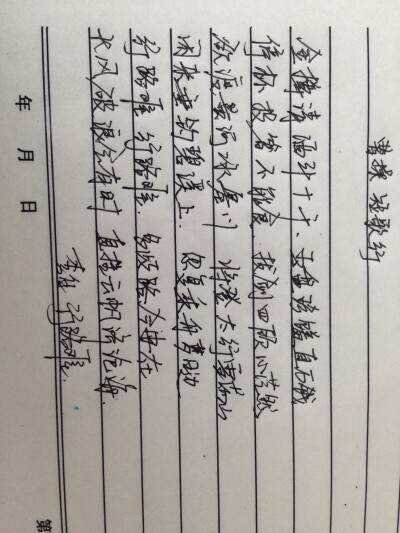 曹操 短歌行
金樽清酒斗十千、玉盘珍馐直万钱
停杯投箸不能食 拔剑四顾心茫然
欲渡黄河冰塞川 将登太行雪满山
闲来垂钓碧溪上 忽复乘舟梦日边
行路难 行路难 多歧路 今安在
长风破浪会有时 直挂云帆济沧海
李白 行路难.
年 月 日
第